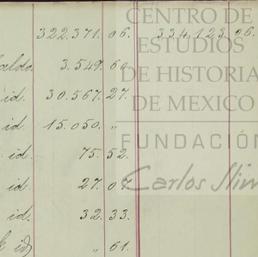 322.371. 06. 334.123. 06.
Saldo. 3.549. 60
id. 30.567. 27.
id. 15.050. "
id. 75. 52.
id. 27. 07
id. 32. 33.
id. " 61.
CENTRO DE
ESTUDIOS
DE HISTORIA
DE MEXICO
FUNDACIÓN
Carlos Slim